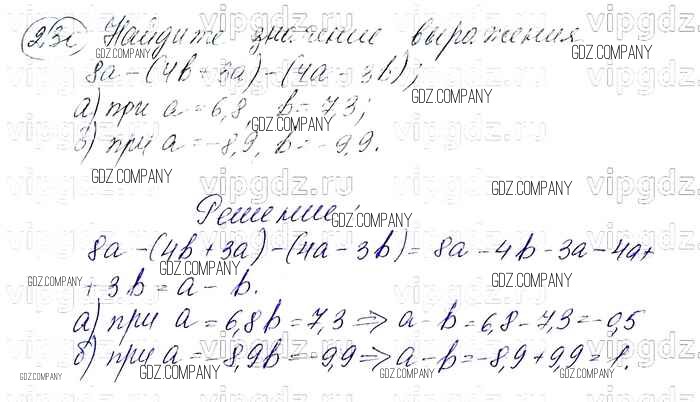 23с Найдите значение выражения
8a-(4b+3a)-(4a-3b);
а) при a=6,8, b=7,3;
б) при a=-8,9, b=-9,9.
Решение:
8a-(4b+3a)-(4a-3b)=8a-4b-3a-4a+
+3b=a-b.
а) при a=6,8 b=7,3 => a-b=6,8-7,3=-0,5
б) при a=-8,9 b=-9,9 => a-b=-8,9+9,9=1.
vipgdz.ru
GDZ.COMPANY